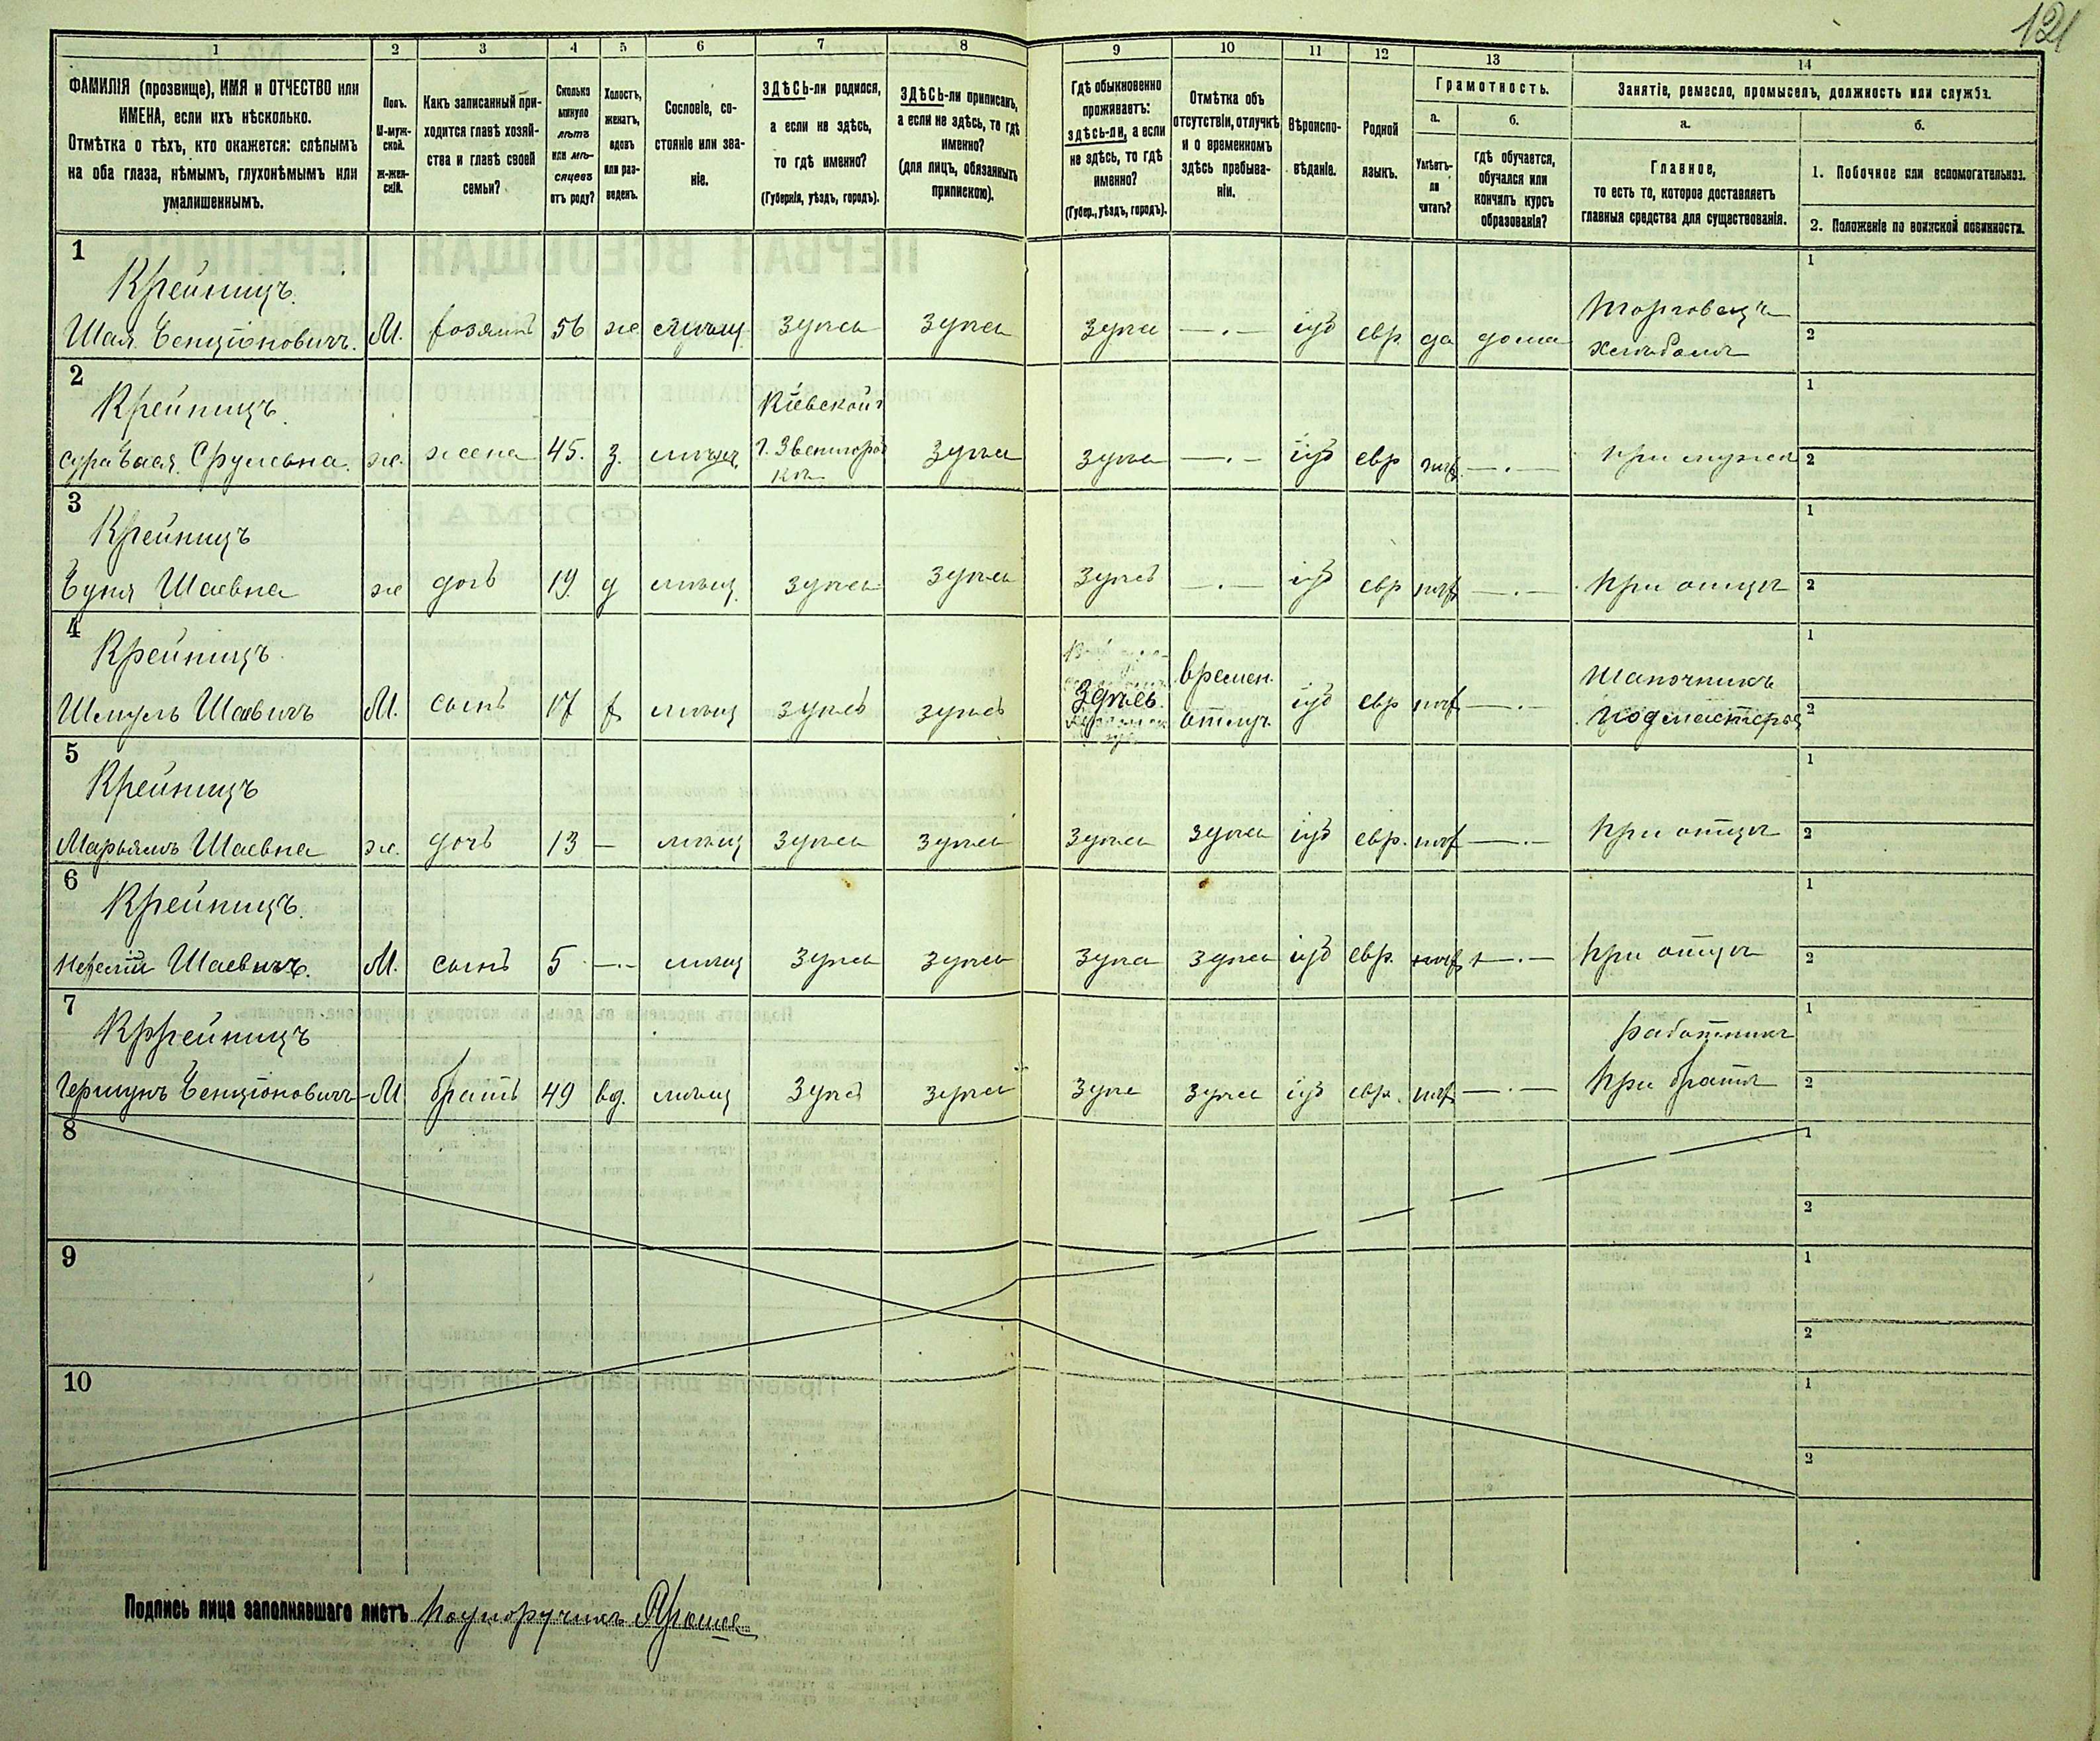 121
1 2 3 4 5 6 7 8 9 10 11 12 13 14
ФАМИЛІЯ (прозвище), ИМЯ и ОТЧЕСТВО или
ИМЕНА, если ихъ нѣсколько.
Отмѣтка о тѣхъ, кто окажется: слѣпымъ
на оба глаза, нѣмымъ, глухонѣмымъ или
умалишеннымъ.
Полъ.
М-муж-
ской.
ж-жен-
скій.
Какъ записанный при-
ходится главѣ хозяй-
ства и главѣ своей
семьи?
Сколько
минуло
лѣтъ
или мѣ-
сяцевъ
отъ роду?
Холостъ,
женатъ,
вдовъ
или раз-
веденъ.
Сословіе, со-
стояніе или зва-
ніе.
ЗДѢСЬ-ли родился,
а если не здѣсь,
то гдѣ именно?
(Губернія, уѣздъ, городъ).
ЗДѢСЬ-ли приписанъ,
а если не здѣсь, то гдѣ
именно?
(для лицъ, обязанныхъ
припискою).
Гдѣ обыкновенно
проживаетъ:
здѣсь-ли, а если
не здѣсь, то гдѣ
именно?
(Губер., уѣздъ, городъ).
Отмѣтка объ
отсутствіи, отлучкѣ
и о временномъ
здѣсь пребыва-
ніи.
Вѣроиспо-
вѣданіе.
Родной
языкъ.
Грамотность.
а.
Умѣетъ-
ли
читать?
б.
гдѣ обучается,
обучался или
кончилъ курсъ
образованія?
Занятіе, ремесло, промыселъ, должность или служба.
а.
Главное,
то есть то, которое доставляетъ
главныя средства для существованія.
б.
1. Побочное или вспомогательное.
2. Положеніе по воинской повинности.
1
Крейницъ.
Шая Бенціоновичъ. М. хозяинъ 56 же мѣщ. здѣсь здѣсь здѣсь —.— іуд евр да дома
Торговецъ
хлѣбомъ
1
2
2
Крейницъ.
Сура Срулевна. же. жена 45. з. мѣщ.
Кіевской
г. Звенигород
ка
здѣсь здѣсь —.— іуд евр нѣт —.— при мужѣ
1
2
3
Крейницъ
Буня Шаевна же дочь 19. д мѣщ. здѣсь здѣсь здѣсь —.— іуд евр нѣт —.— при отцѣ
1
2
4
Крейницъ.
Шмуль Шаевичъ М. сынъ 17 х мѣщ здѣсь здѣсь Здѣсь.
времен.
отлуч.
іуд евр нѣт —.—
шапочникъ
подмастерье
1
2
5
Крейницъ
Марьямъ Шаевна же. дочь 13 — мѣщ здѣсь здѣсь здѣсь здѣсь іуд евр. нѣт —.— при отцѣ
1
2
6
Крейницъ.
Шаевичъ. М. сынъ 5 —.— мѣщ здѣсь здѣсь здѣсь здѣсь іуд евр. нѣт —.— при отцѣ
1
2
7
Крейницъ
Гершунъ Бенціоновичъ М братъ 49 вд. мѣщ здѣсь здѣсь здѣсь здѣсь іуд евр. нѣт —.—
работникъ
при братѣ
1
2
8
1
2
9
1
2
10
1
2
Подпись лица заполнявшаго листъ Подпоручикъ